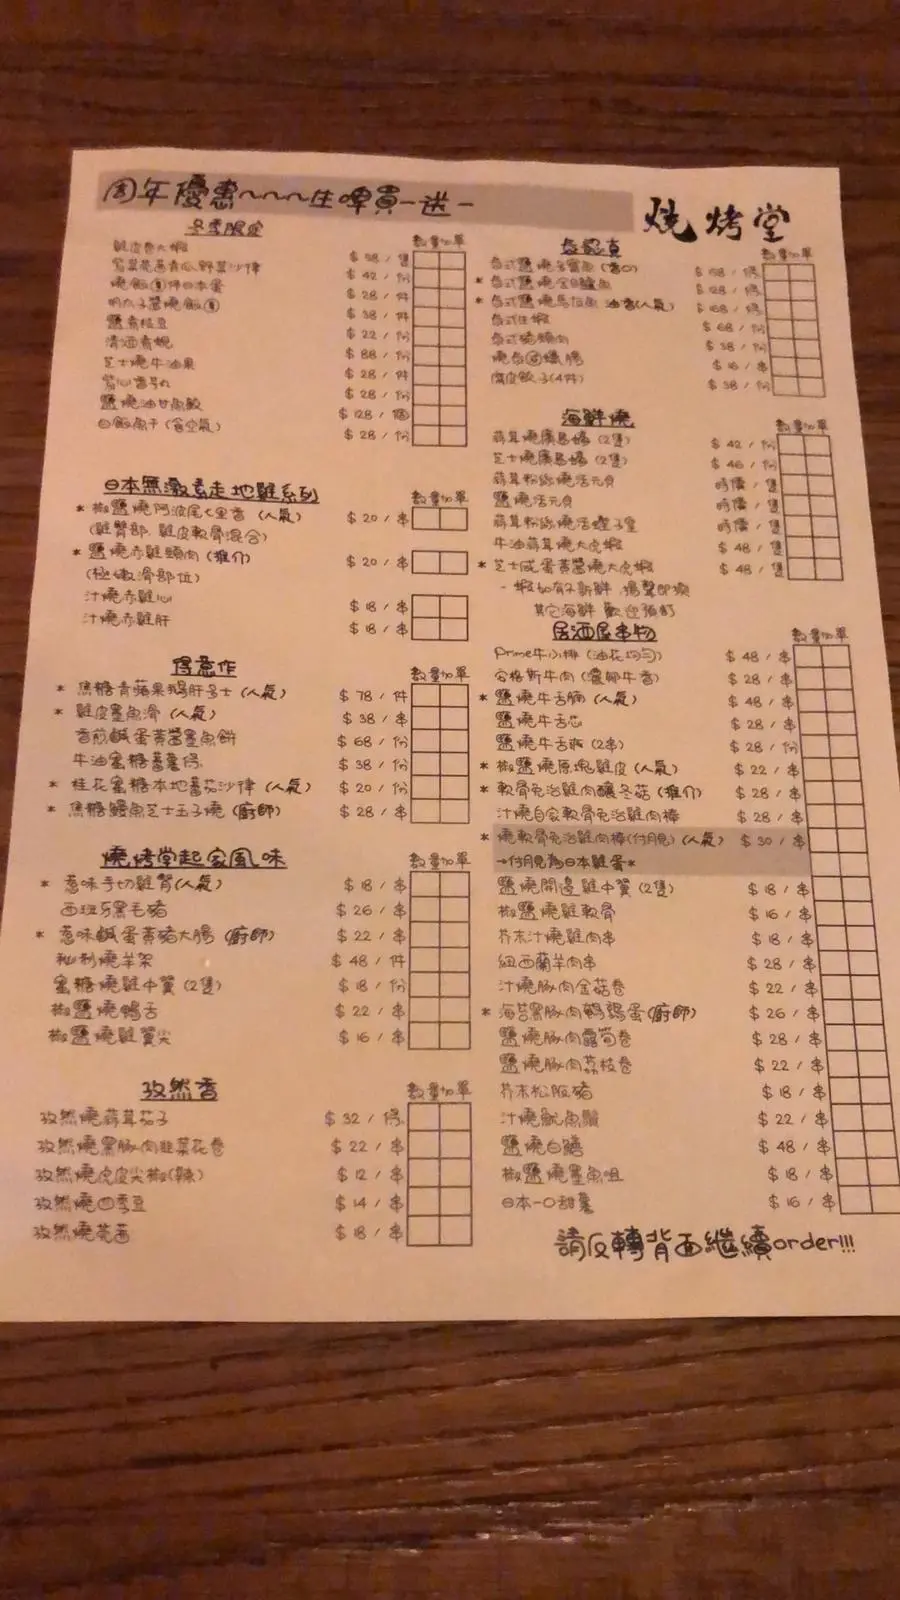 周年優惠~~~~生啤買一送一
燒烤堂
冬季限定
數量加單
雞皮卷大蝦 $38/隻
$42/份
燒飯 件日本蛋 $28/件
明太子醬燒飯 $38/件
鹽青枝豆 $22/份
清酒青蜆 $88/份
芝士燒牛油果 $28/件
$28/份
鹽燒油甘魚鮫 $128/個
白飯魚干(含空氣) $28/份
日本無激素走地雞系列
數量加單
* 椒鹽燒阿波尾七里香(人氣) $20/串
(雞臀部.雞皮軟骨混合)
* 鹽燒赤雞頸肉(推介) $20/串
(極嫩滑部位)
汁燒赤雞心 $18/串
汁燒赤雞肝 $18/串
得意作
數量加單
* 焦糖青蘋果鵝肝多士(人氣) $78/件
* 雞皮墨魚滑(人氣) $38/串
香煎鹹蛋黃醬墨魚餅 $68/份
牛油蜜糖蕃薯條 $38/份
* 桂花蜜糖本地蕃茄沙律(人氣) $20/份
* 焦糖鰻魚芝士玉子燒(廚師) $28/串
燒烤堂起家風味
數量加單
* 蔥味手切雞腎(人氣) $18/串
西班牙黑毛豬 $26/串
* 蔥味鹹蛋黃豬大腸(廚師) $22/串
秘制燒羊架 $48/件
蜜糖燒雞中翼(2隻) $18/份
椒鹽燒鴨舌 $22/串
椒鹽燒雞翼尖 $16/串
孜然香
數量加單
孜然燒蒜茸茄子 $32/條
孜然燒黑豚肉韭菜花卷 $22/串
孜然燒虎皮尖椒(辣) $12/串
孜然燒四季豆 $14/串
孜然燒 $18/串
數量加單
$158/條
* 台式鹽燒金目鱸魚 $128/條
* 台式鹽燒馬友魚 油香(人氣) $168/條
台式生蝦 $68/份
台式豬頸肉 $38/份
腸 $16/串
餃子(4件) $38/份
海鮮燒
數量加單
蒜茸燒廣島蠔(2隻) $42/份
芝士燒廣島蠔(2隻) $46/份
蒜茸粉絲燒活元貝 時價/隻
鹽燒活元貝 時價/隻
蒜茸粉絲燒活蟶子皇 時價/隻
牛油蒜茸燒大虎蝦 $48/隻
* 芝士咸蛋黃醬燒大虎蝦 $48/隻
-蝦如有不新鮮.揚聲即換
其它海鮮 歡迎預訂
居酒屋串物
數量加單
Prime牛小排(油花均勻) $48/串
安格斯牛肉(濃郁牛香) $28/串
* 鹽燒牛舌腩(人氣) $48/串
鹽燒牛舌芯 $28/串
鹽燒牛舌 (2串) $28/份
* 椒鹽燒原塊雞皮(人氣) $22/串
* 軟骨免治雞肉釀冬菇(推介) $28/串
汁燒自家軟骨免治雞肉棒 $28/串
* 燒軟骨免治雞肉棒(付月見)(人氣) $30/串
→付月見為日本雞蛋*
鹽燒開邊雞中翼(2隻) $18/串
椒鹽燒雞軟骨 $16/串
芥末汁燒雞肉串 $18/串
紐西蘭羊肉串 $28/串
汁燒豚肉金菇卷 $22/串
* 海苔黑豚肉鵪鶉蛋(廚師) $26/串
鹽燒豚肉露筍卷 $28/串
鹽燒豚肉荔枝卷 $22/串
芥末松阪豬 $18/串
汁燒魷魚鬚 $22/串
鹽燒白鱔 $48/串
椒鹽燒墨魚咀 $18/串
日本一口甜薯 $16/串
請反轉背面繼續order!!!